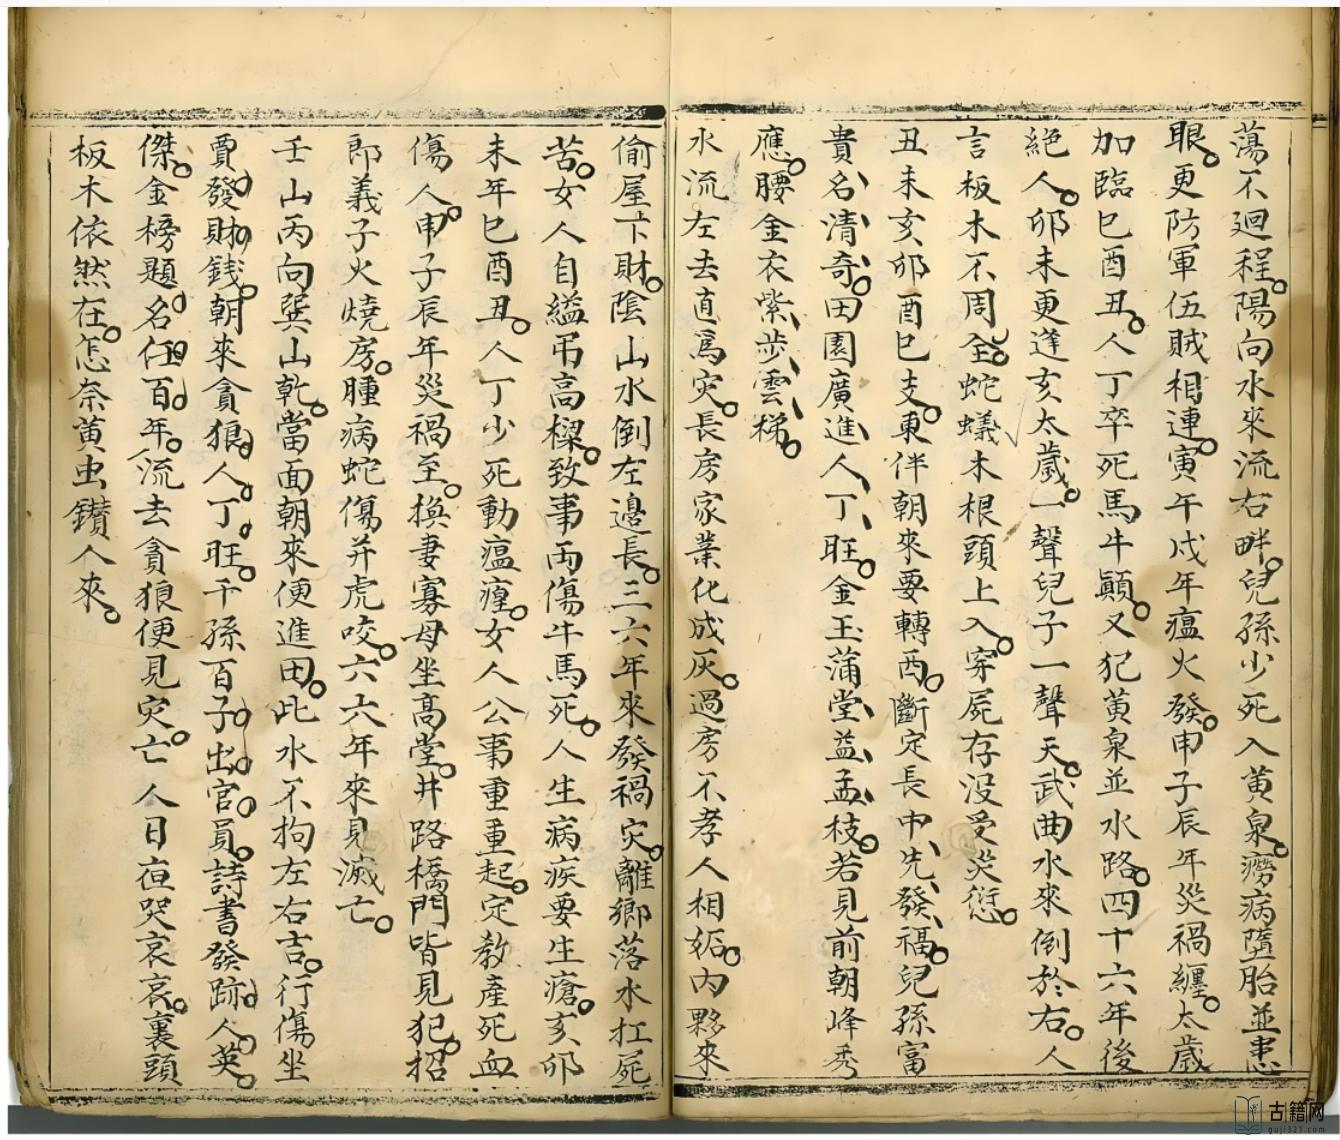 蕩不廻程陽向水來流右畔兒孫少死入黄泉癆病墮胎並患
眼更防軍伍賊相連寅午戌年瘟火發申子辰年災禍纏太歲
加臨巳酉丑人丁卒死馬牛顛又犯黄泉並水路四十六年後
絕人卯未更逢亥太歲一聲兒子一聲天武曲水來倒於右人
言板木不周全蛇蟻木根頭上入穿屍存没受災愆
丑未亥卯酉巳支東伴朝來要轉西斷定長中先發福兒孫富
貴名清奇田園廣進人丁旺金玉蒲堂益孟枝若見前朝峰秀
應腰金衣紫步雲梯
水流左去直爲灾長房家業化成灰過房不孝人相妬内夥來
偷屋下財陰山水倒左邉長三六年來發禍灾離鄉落水扛屍
苦女人自縊吊高樑致事両傷牛馬死人生病疾要生瘡亥卯
未年巳酉丑人丁少死動瘟㾮女人公事重重起定教產死血
傷人申子辰年災禍至換妻寡母坐高堂井路橋門皆見犯招
郎義子火燒房腫病蛇傷并虎咬六六年來見滅亡
壬山丙向巽山乾當面朝來便進田此水不拘左右吉行傷坐
賈發財銭朝來貪狼人丁旺千孫百子出官員詩書發跡人英
傑金榜題名任百年流去貪狼便見灾亡人日夜哭哀哀裏頭
板木依然在怎奈黄虫鑚人來
古籍网
guji321.com